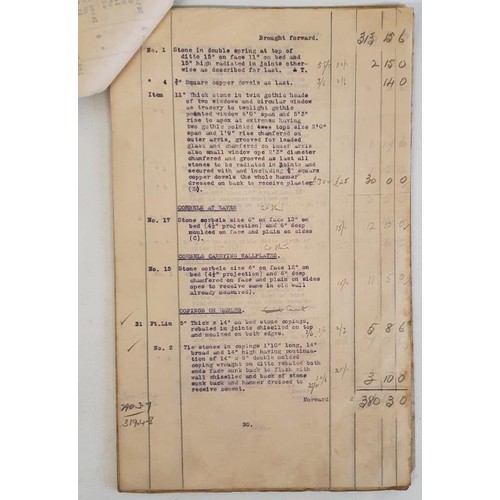 Brought forward. 313 15 6
No. 1 Stone in double spring at top of
ditto 15" on face 11" on bed and
15" high radiated in joints other-
wise as described for last. & T. 2 15 0
" 4 Square copper dowels as last. 14 0
Item 11" Thick stone in twin gothic heads
of two windows and circular window
as tracery to twolight gothic
pointed window 6'0" span and 5'3"
rise to apex at extreme having
two gothic pointed tops 2'0"
span and 1'9" rise chamfered on
outer arris, grooved for leaded
glass and chamfered on inner arris
also small window ope 2'3" diameter
chamfered and grooved as last all
stones to be radiated in joints and
secured with and including square
copper dowels the whole hammer
dressed on back to receive plaster 30 0 0
CORBELS AT EAVES
No. 17 Stone corbels size 6" on face 12" on
bed (4½" projection) and 6" deep
moulded on face and plain on sides
(C).
CORBELS CARRYING WALLPLATES.
No. 15 Stone corbels size 6" on face 12" on
bed (4½" projection) and 5" deep
chamfered on face and plain on sides
opes to receive same in old wall
already measured). 11 5 0
COPINGS ON GABLES.
31 Ft.Lin 3" Thick x 14" on bed stone copings,
rebated in joints chiselled on top
and moulted on both edges. 5 8 6
No. 2 Tie stones in copings 1'10" long, 14"
broad and 14" high having continua-
tion of 14" x 3" double molded
coping wrought on ditto rebated both
ends face sunk back to flush with
wall chiselled and back of stone
sunk back and hammer dressed to
receive cement. 3 10 0
Forward 380 3 0
30.